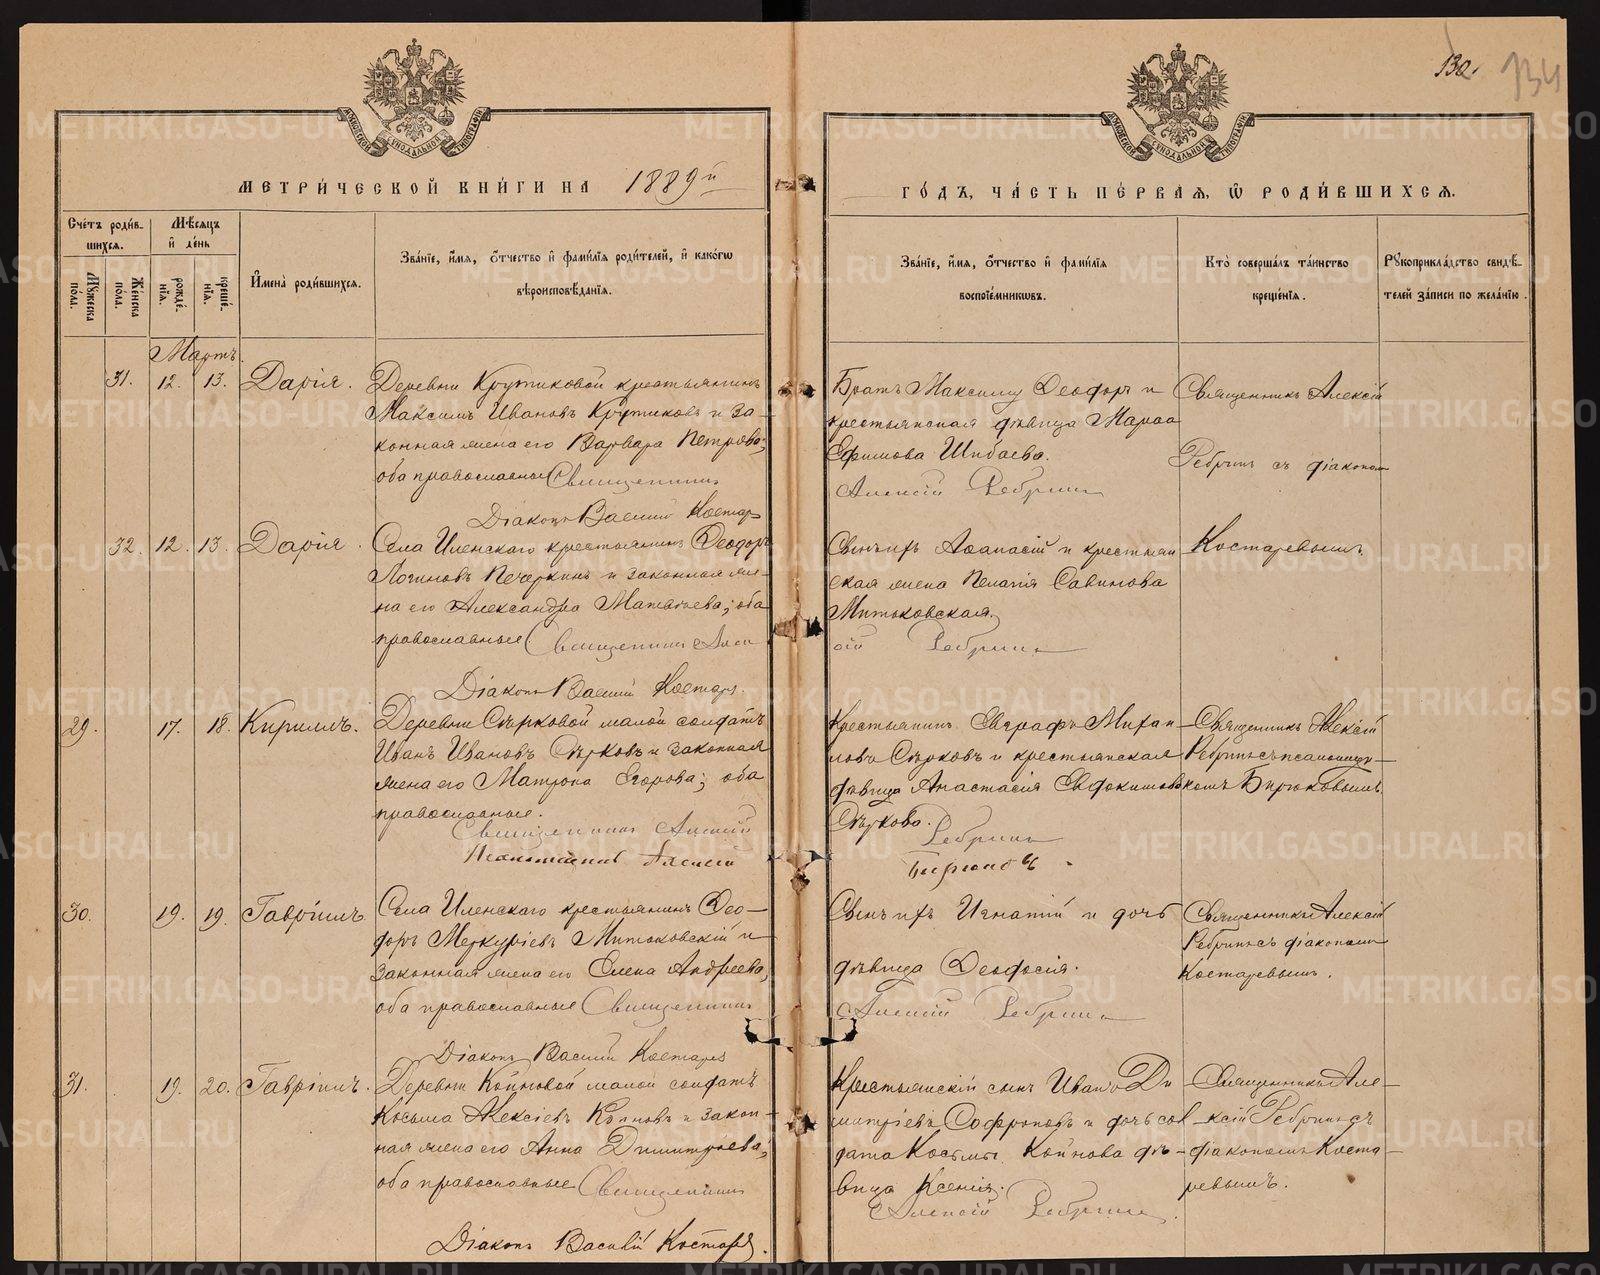 130. 134
МЕТРИ́ЧЕСКОЙ КНИ́ГИ НА 1889й
ГО́ДЪ, ЧА́СТЬ ПЕ́РВАЯ, Ѡ РОДИ́ВШИХСЯ.
Сче́тъ роди́в-
шихся.
Мѣ́сяцъ
и҆ де́нь
Мꙋ́жеска по́ла.
Же́нска по́ла.
рожде́нїя.
креще́нїя.
И҆мена̀ роди́вшихся.
Зва́нїе, и҆́мя, о҆́тчество и҆ фами́лїя роди́телей, и҆ како́гѡ
вѣроисповѣ́данїя.
Зва́нїе, и҆́мя, о҆́тчество и҆ фами́лїя
воспрїе́мникѡвъ.
Кто̀ соверша́лъ та́инство
креще́нїя.
Рꙋкоприкла́дство свидѣ́-
телей за́писи по жела́нїю.
Мартъ.
31. 12. 13. Дарія.
Деревни Крутиковой крестьянинъ
Максимъ Ивановъ Крутиковъ и за-
конная жена его Варвара Петрова;
оба православные Священникъ
Діаконъ Василій Костар
Братъ Максиму Ѳеодоръ и
крестьянская дѣвица Марѳа
Ефимова Шибаева.
Алексій Ребринъ
Священникъ Алексій
Ребринъ съ діакономъ
32. 12. 13. Дарія.
Села Иленскаго крестьянинъ Ѳеодоръ
Логиновъ Печеркинъ и законная же-
на его Александра Матвѣева; оба
православные Священникъ Алек
Діаконъ Василій Костар.
Сынъ ихъ Аѳанасій и крестьян
ская жена Пелагія Савинова
Митьковская.
сій Ребринъ
Костаревымъ.
29. 17. 18. Кириллъ.
Деревни Сѣрковой малой солдатъ
Иванъ Ивановъ Сѣрковъ и законная
жена его Матрона Егорова; оба
православные.
Священникъ Алексій
Псаломщикъ Алексій
Крестьянинъ Евграфъ Михаи-
ловъ Сѣрковъ и крестьянская
дѣвица Анастасія Евдокимова
Сѣркова.
Ребринъ
Бирюковъ
Священникъ Алексій
Ребринъ съ псаломщи-
комъ Бирюковымъ.
30. 19. 19. Гавріилъ
Села Иленскаго крестьянинъ Ѳео-
доръ Меркурьевъ Митьковскій и
законная жена его Елена Андреева;
оба православные Священникъ
Діаконъ Василій Костарев
Сынъ ихъ Игнатій и дочь
дѣвица Ѳеодосія.
Алексій Ребринъ
Священникъ Алексій
Ребринъ съ діакономъ
Костаревымъ.
31. 19. 20. Гавріилъ.
Деревни Койновой малой солдатъ
Косьма Алексіевъ Койновъ и закон-
ная жена его Анна Димитріева;
оба православные Священникъ
Діаконъ Василій Костарев.
Крестьянскій сынъ Иванъ Ди
митріевъ Софроновъ и дочь сол
дата Косьмы Койнова дѣ-
вица Ксенія.
Алексій Ребринъ.
Священникъ Але-
ксій Ребринъ съ
діакономъ Коста-
ревымъ.
METRIKI.GASO-URAL.RU